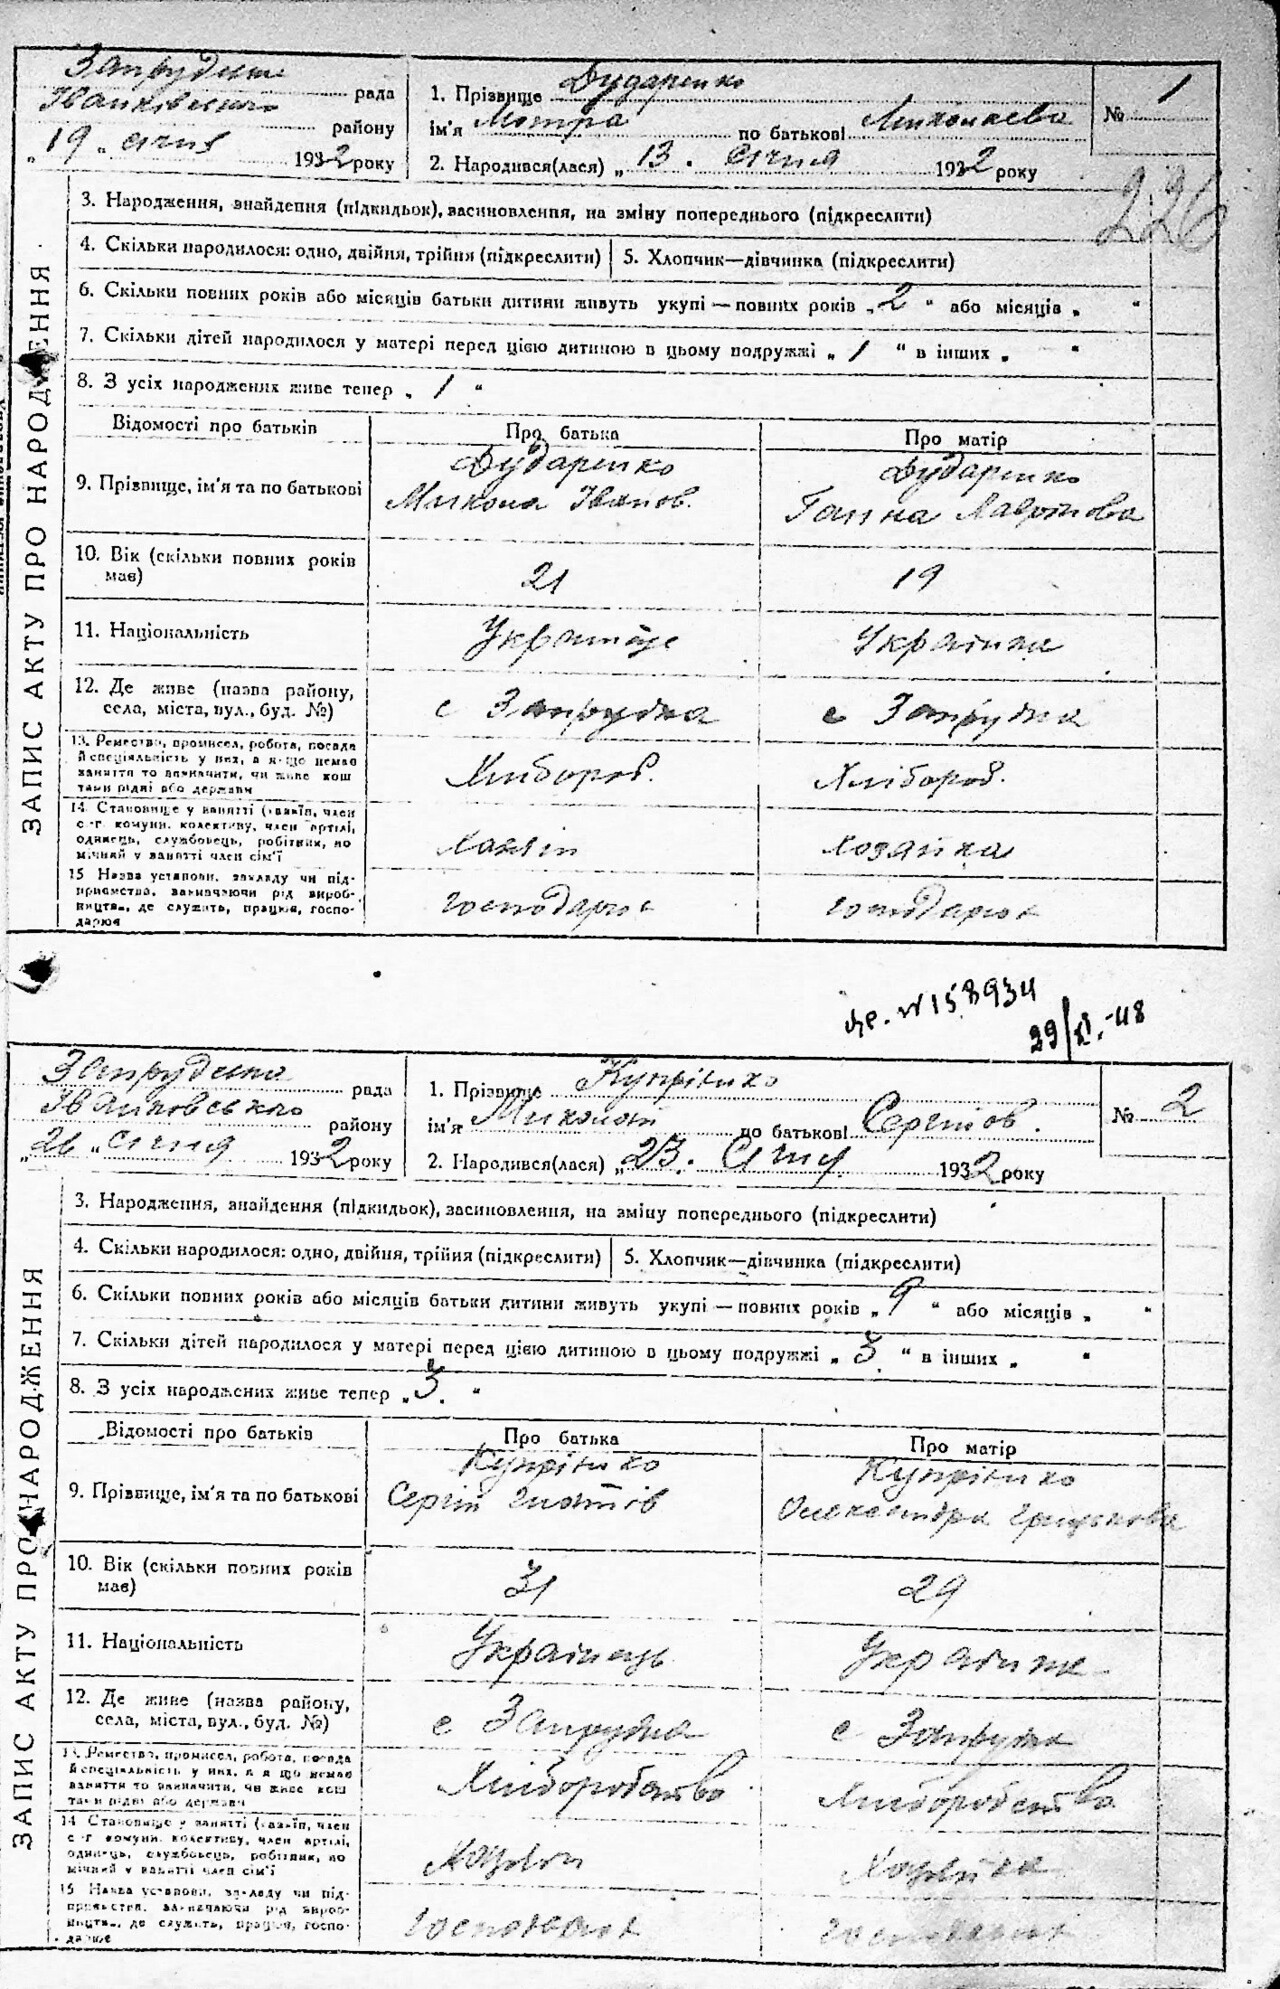 Запрудська рада
Іванківського району
„19„ січня 1932 року
1. Прізвище Дударенко
ім'я Мотря по батькові Миколаєва
2. Народився(лася) „13. Січня 1932 року
№ 1
226
ЗАПИС АКТУ ПРО НАРОДЖЕННЯ
3. Народження, знайдення (підкидьок), засиновлення, на зміну попереднього (підкреслити)
4. Скільки народилося: одно, двійня, трійня (підкреслити) 5. Хлопчик—дівчинка (підкреслити)
6. Скільки повних років або місяців батьки дитини живуть укупі — повних років „ 2 “ або місяців „ “
7. Скільки дітей народилося у матері перед цією дитиною в цьому подружжі „ 1 “ в інших „ “
8. З усіх народжених живе тепер „ 1 “
Відомості про батьків Про батька Про матір
9. Прізвище, ім'я та по батькові
Дударенко
Микола Іванов.
Дударенко
Ганна Лаврінова
10. Вік (скільки повних років
має)
21 19
11. Національність Українець Українка
12. Де живе (назва району,
села, міста, вул., буд. №)
с Запрудка с Запрудка
13. Ремество, промисел, робота, посада
й спеціяльність у них, а якщо немає
заняття то зазначити, чи живе кош
тами рідні або держави
Хлібороб. Хлібороб.
14. Становище у занятті (хазяїн, член
с.-г. комуни, колективу, член артілі,
одинець, службовець, робітник, по
мічний у занятті член сім'ї
Хазяїн Хозяйка
15 Назва установи, закладу чи під-
приємства, зазначаючи рід вироб-
ництва, де служить, працює, госпо-
дарює
господарює господарює
№158934
29/XI.-48
Запрудська рада
Іванковського району
„26„ січня 1932 року
1. Прізвище Купрієнко
ім'я Миколай по батькові Сергіїов.
2. Народився(лася) „23. Січня 1932 року
№ 2
ЗАПИС АКТУ ПРО НАРОДЖЕННЯ
3. Народження, знайдення (підкидьок), засиновлення, на зміну попереднього (підкреслити)
4. Скільки народилося: одно, двійня, трійня (підкреслити) 5. Хлопчик—дівчинка (підкреслити)
6. Скільки повних років або місяців батьки дитини живуть укупі — повних років „ 9 “ або місяців „ “
7. Скільки дітей народилося у матері перед цією дитиною в цьому подружжі „ 3 “ в інших „ “
8. З усіх народжених живе тепер „ 3. “
Відомості про батьків Про батька Про матір
9. Прізвище, ім'я та по батькові
Купрієнко
Сергій
Купрієнко
Олександра
10. Вік (скільки повних років
має)
31 29
11. Національність Українець Українка
12. Де живе (назва району,
села, міста, вул., буд. №)
с Запрудка с Запрудка
13. Ремество, промисел, робота, посада
й спеціяльність у них, а якщо немає
заняття то зазначити, чи живе кош
тами рідні або держави
Хліборобство Хліборобство
14 Становище у занятті (хазяїн, член
с.-г. комуни, колективу, член артілі,
одинець, службовець, робітник, по
мічний у занятті член сім'ї
Хазяїн Хазяйка
15 Назва установи, закладу чи під-
приємства, зазначаючи рід вироб-
ництва, де служить, працює, госпо-
дарює